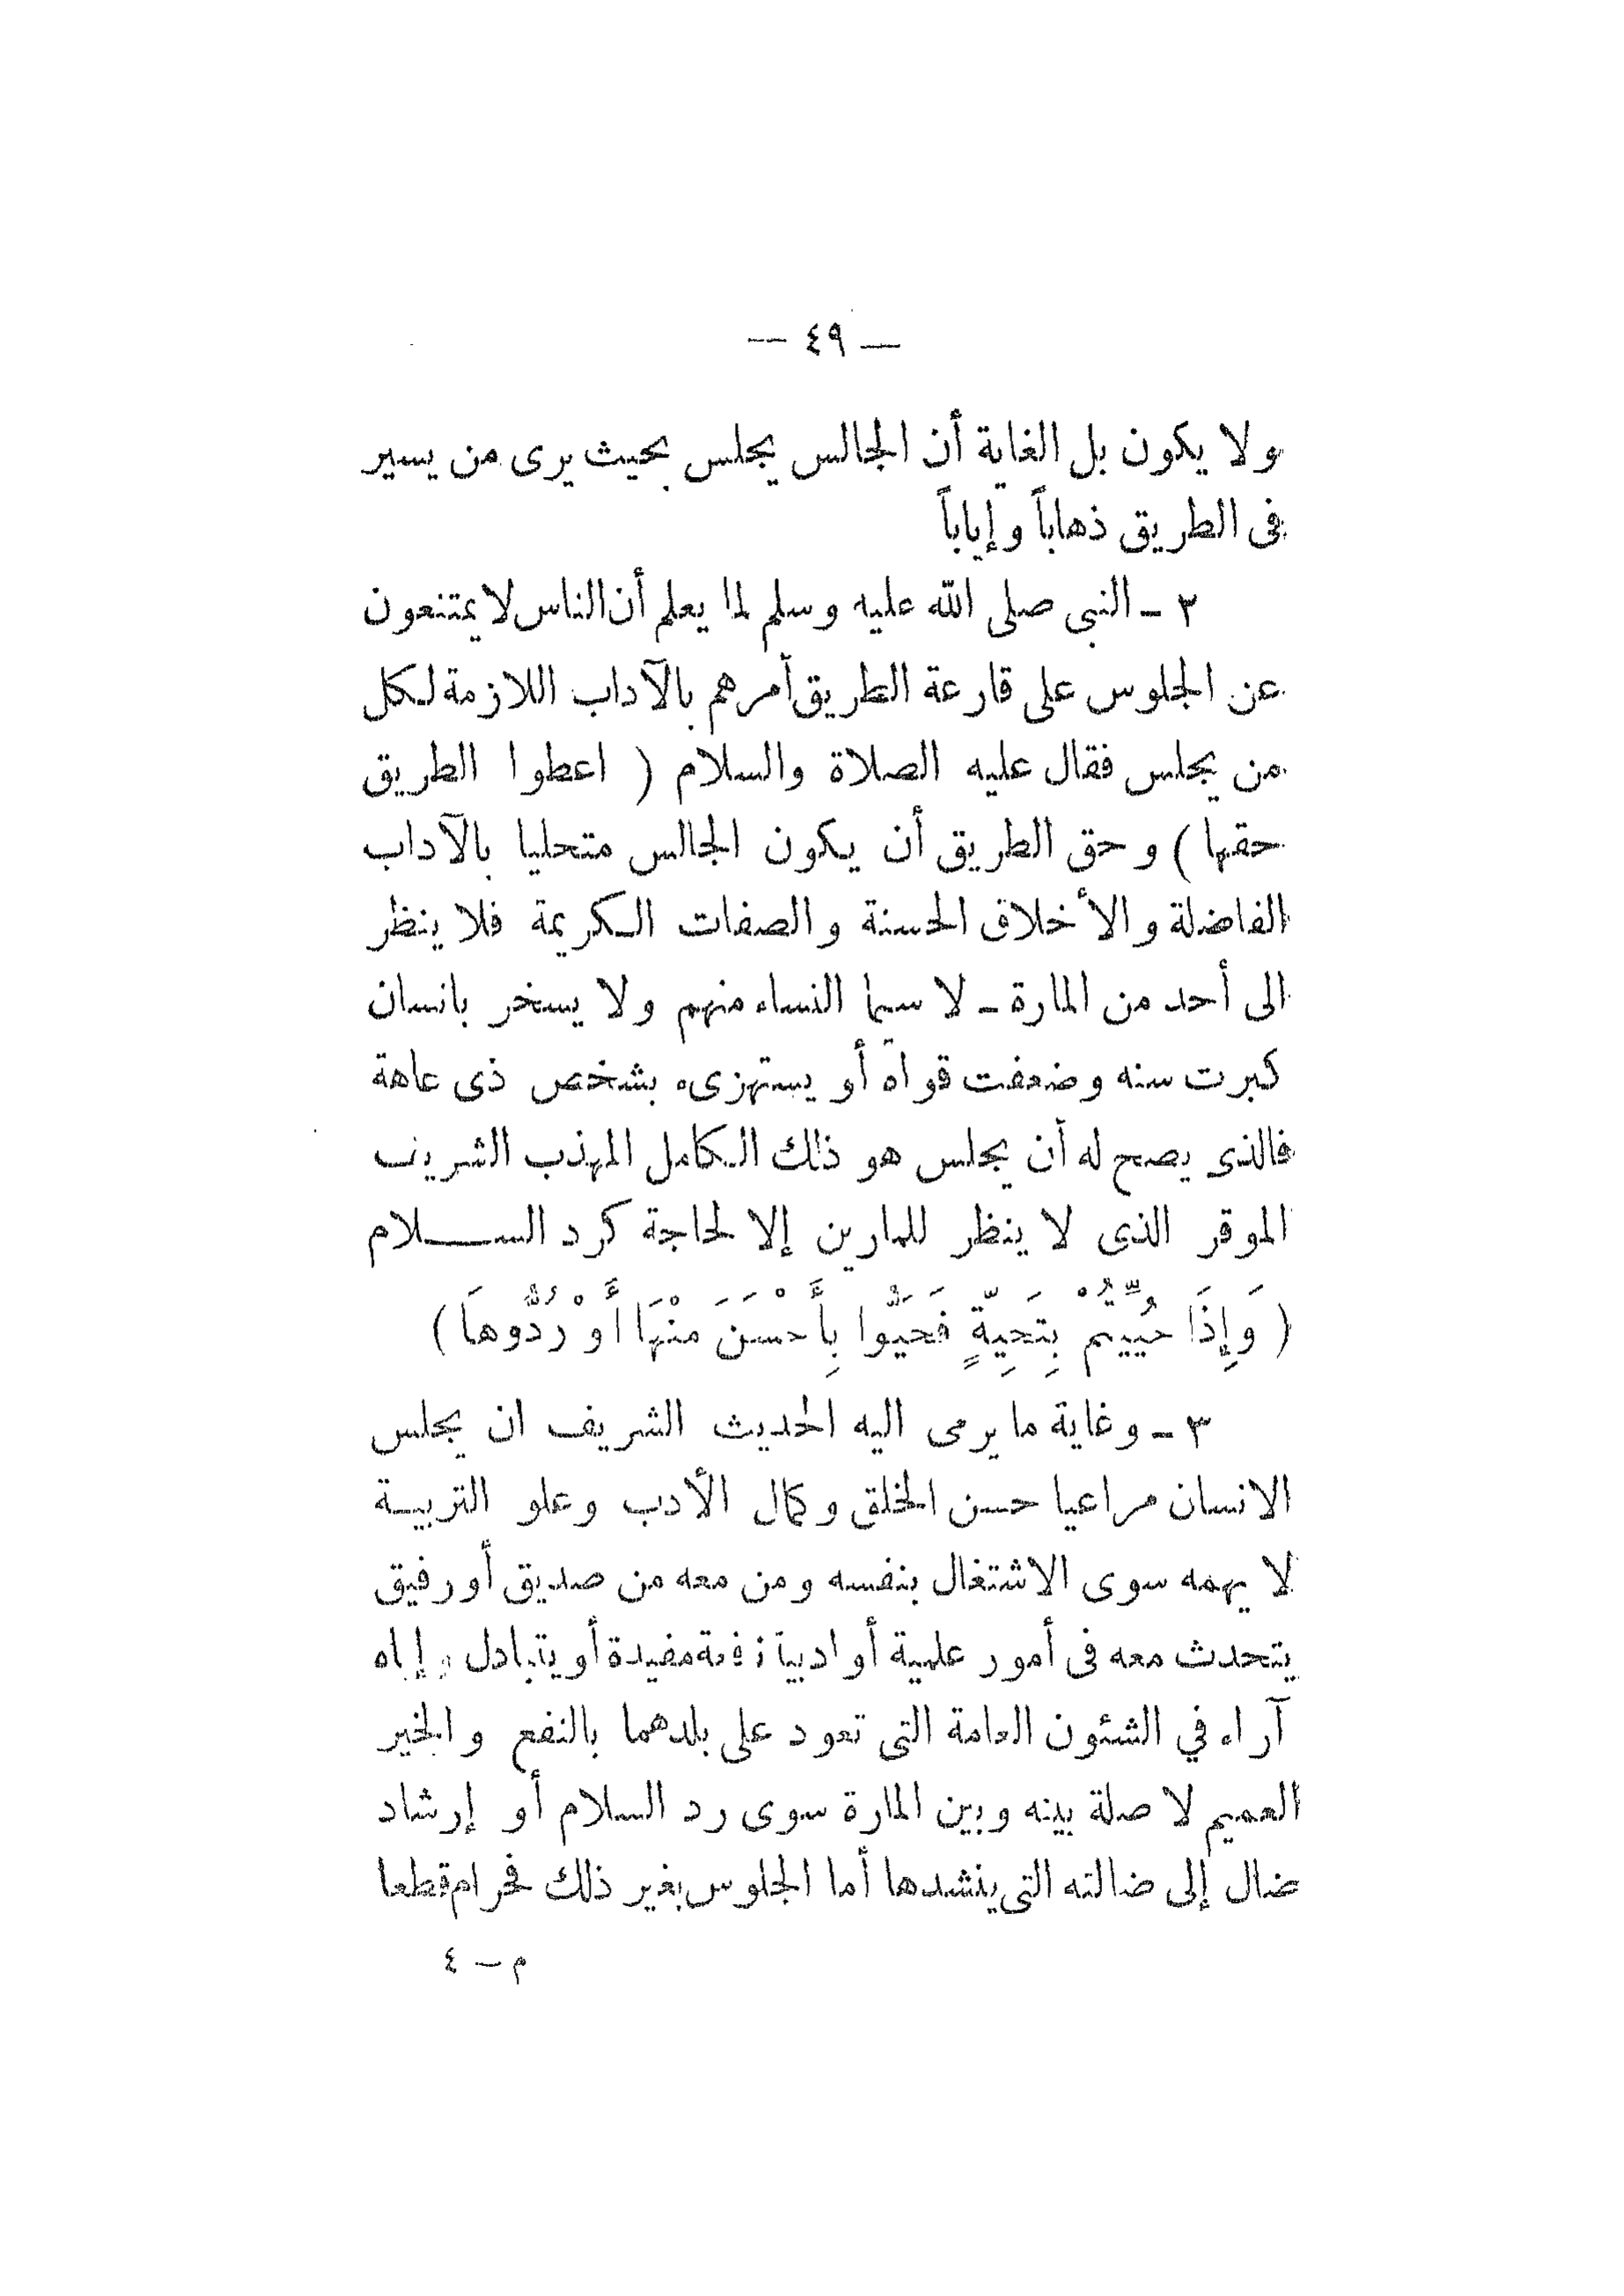 — ٤٩ —
ولا يكون بل الغاية أن الجالس يجلس بحيث يرى من يسير
فى الطريق ذهاباً وإياباً
٢ ـ النبى صلى الله عليه وسلم لما يعلم أن الناس لا يمتنعون
عن الجلوس على قارعة الطريق أمرهم بالآداب اللازمة لكل
من يجلس فقال عليه الصلاة والسلام ( اعطوا الطريق
حقها ) وحق الطريق أن يكون الجالس متحليا بالآداب
الفاضلة والأخلاق الحسنة والصفات الكريمة فلا ينظر
الى أحد من المارة ـ لا سيما النساء منهم ولا يسخر بانسان
كبرت سنه وضعفت قواه أو يستهزىء بشخص ذى عاهة
فالذى يصح له أن يجلس هو ذلك الكامل المهذب الشريف
الموقر الذى لا ينظر للمارين إلا لحاجة كرد الســـلام
( وَإِذَا حُيِّيتُمْ بِتَحِيَّةٍ فَحَيُّوا بِأَحْسَنَ مِنْهَا أَوْ رُدُّوهَا )
٣ ـ وغاية ما يرمى اليه الحديث الشريف ان يجلس
الانسان مراعيا حسن الخلق وكمال الأدب وعلو التربيـة
لا يهمه سوى الاشتغال بنفسه ومن معه من صديق أو رفيق
يتحدث معه فى أمور علمية أو ادبية مفيدة أو يتبادل وإياه
آراء في الشئون العامة التى تعود على بلدهما بالنفع والخير
العميم لا صلة بينه وبين المارة سوى رد السلام أو إرشاد
ضال إلى ضالته التى ينشدها أما الجلوس بغير ذلك فحرام قطعا
م — ٤